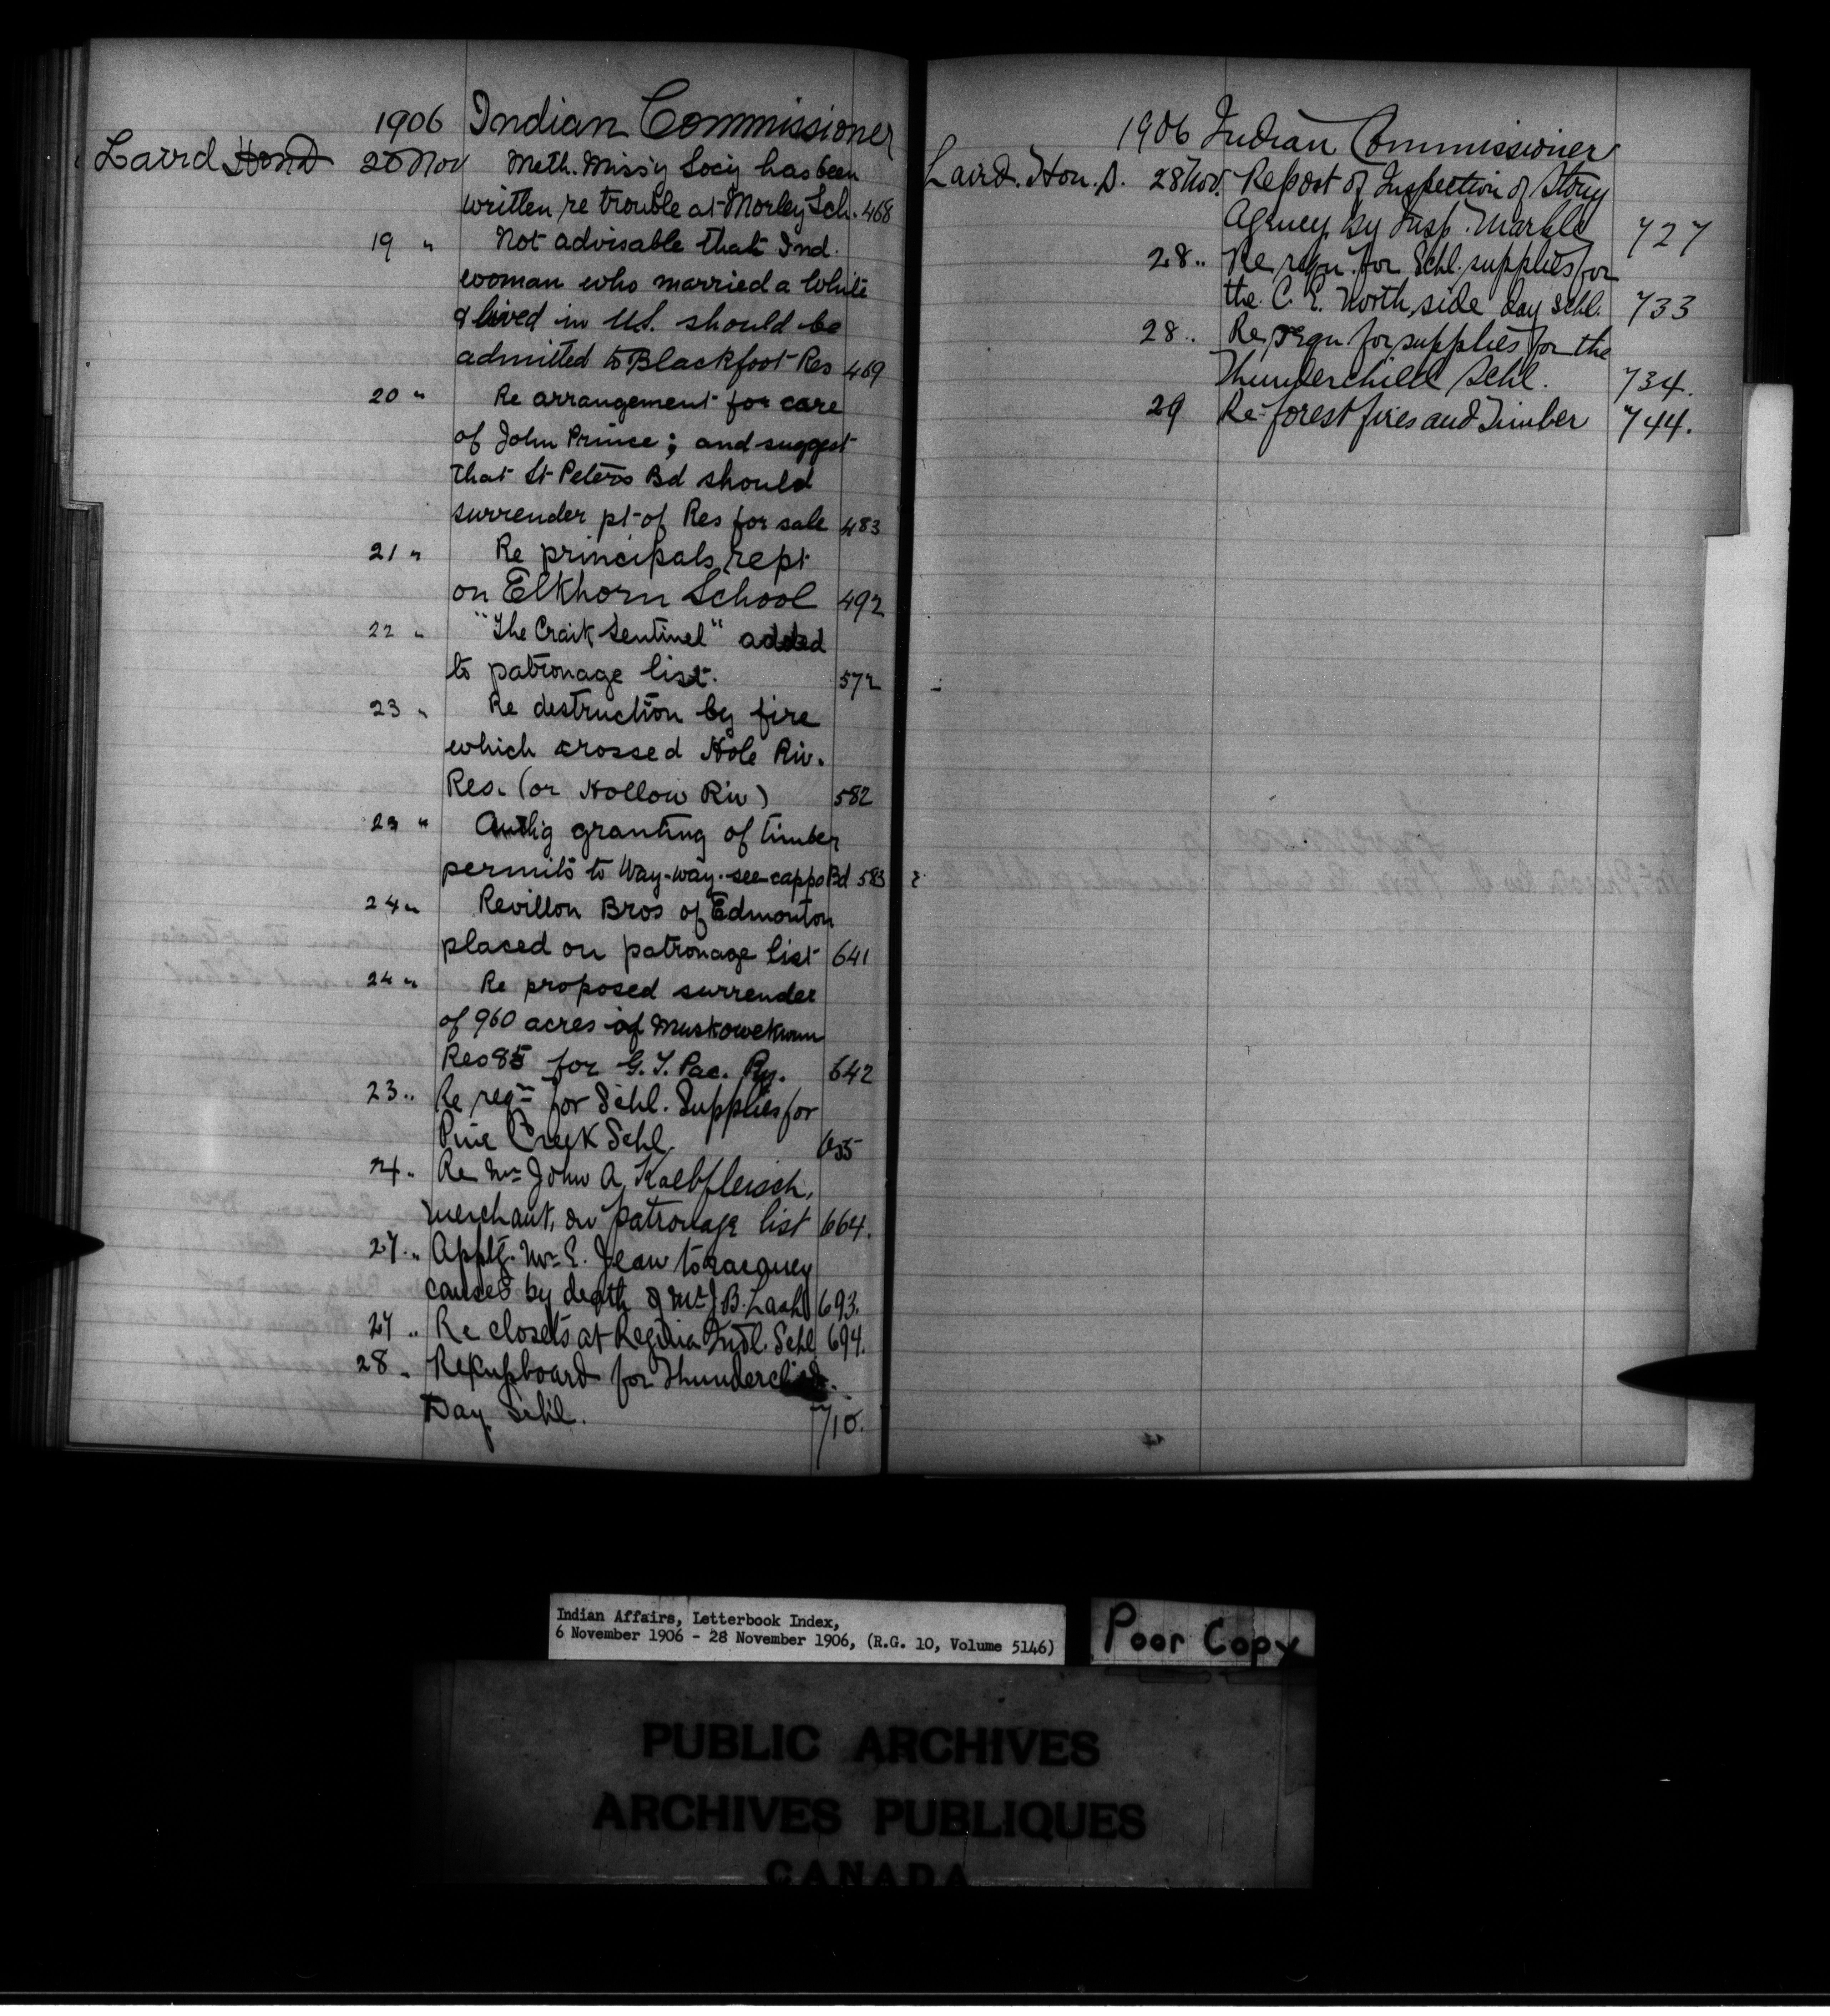 1906 Indian Commissioner
Laird Hon D 20 Nov Meth. Miss'y Socy has been
written re trouble at Morley Sch. 468
19 " Not advisable that Ind.
woman who married a White
& lived in U.S. should be
admitted to Blackfoot Res 469
20 " Re arrangement for care
of John Prince; and suggest
that St Peters Bd should
surrender pt of Res for sale 483
21 " Re principals rept
on Elkhorn School 492
22 " "The Craik Sentinel" added
to patronage list. 572
23 " Re destruction by fire
which crossed Hole Riv.
Res. (or Hollow Riv) 582
23 " Authg granting of timber
permits to Way-way-see-cappo Bd 583
24 " Revillon Bros of Edmonton
placed on patronage list 641
24 " Re proposed surrender
of 960 acres of Muskowekwun
Res 85 for G. T. Pac. Ry. 642
23 " Re reqn for Schl. Supplies for
Pine Creek Schl. 655
24 " Re Mr John A. Kalbfleisch,
merchant, on patronage list 664.
27 " Mr E. Jean to vacancy
caused by death of Mr J. B. Lash 693.
27 " Re closets at Regina Indl. Schl 694.
28 " Re Cupboard for Thunderchild
Day Schl. 710.
1906 Indian Commissioner
Laird. Hon. D. 28 Nov. Report of Inspection of Stony
Agency by Insp. Markle 727
28 " Re reqn. for Schl. supplies for
the C. E. North side day schl. 733
28 " Re reqn for supplies for the
Thunderchild Schl. 734.
29 Re forest fires and Timber 744.
Indian Affairs, Letterbook Index,
6 November 1906 - 28 November 1906, (R.G. 10, Volume 5146)
Poor Copy
PUBLIC ARCHIVES
ARCHIVES PUBLIQUES
CANADA